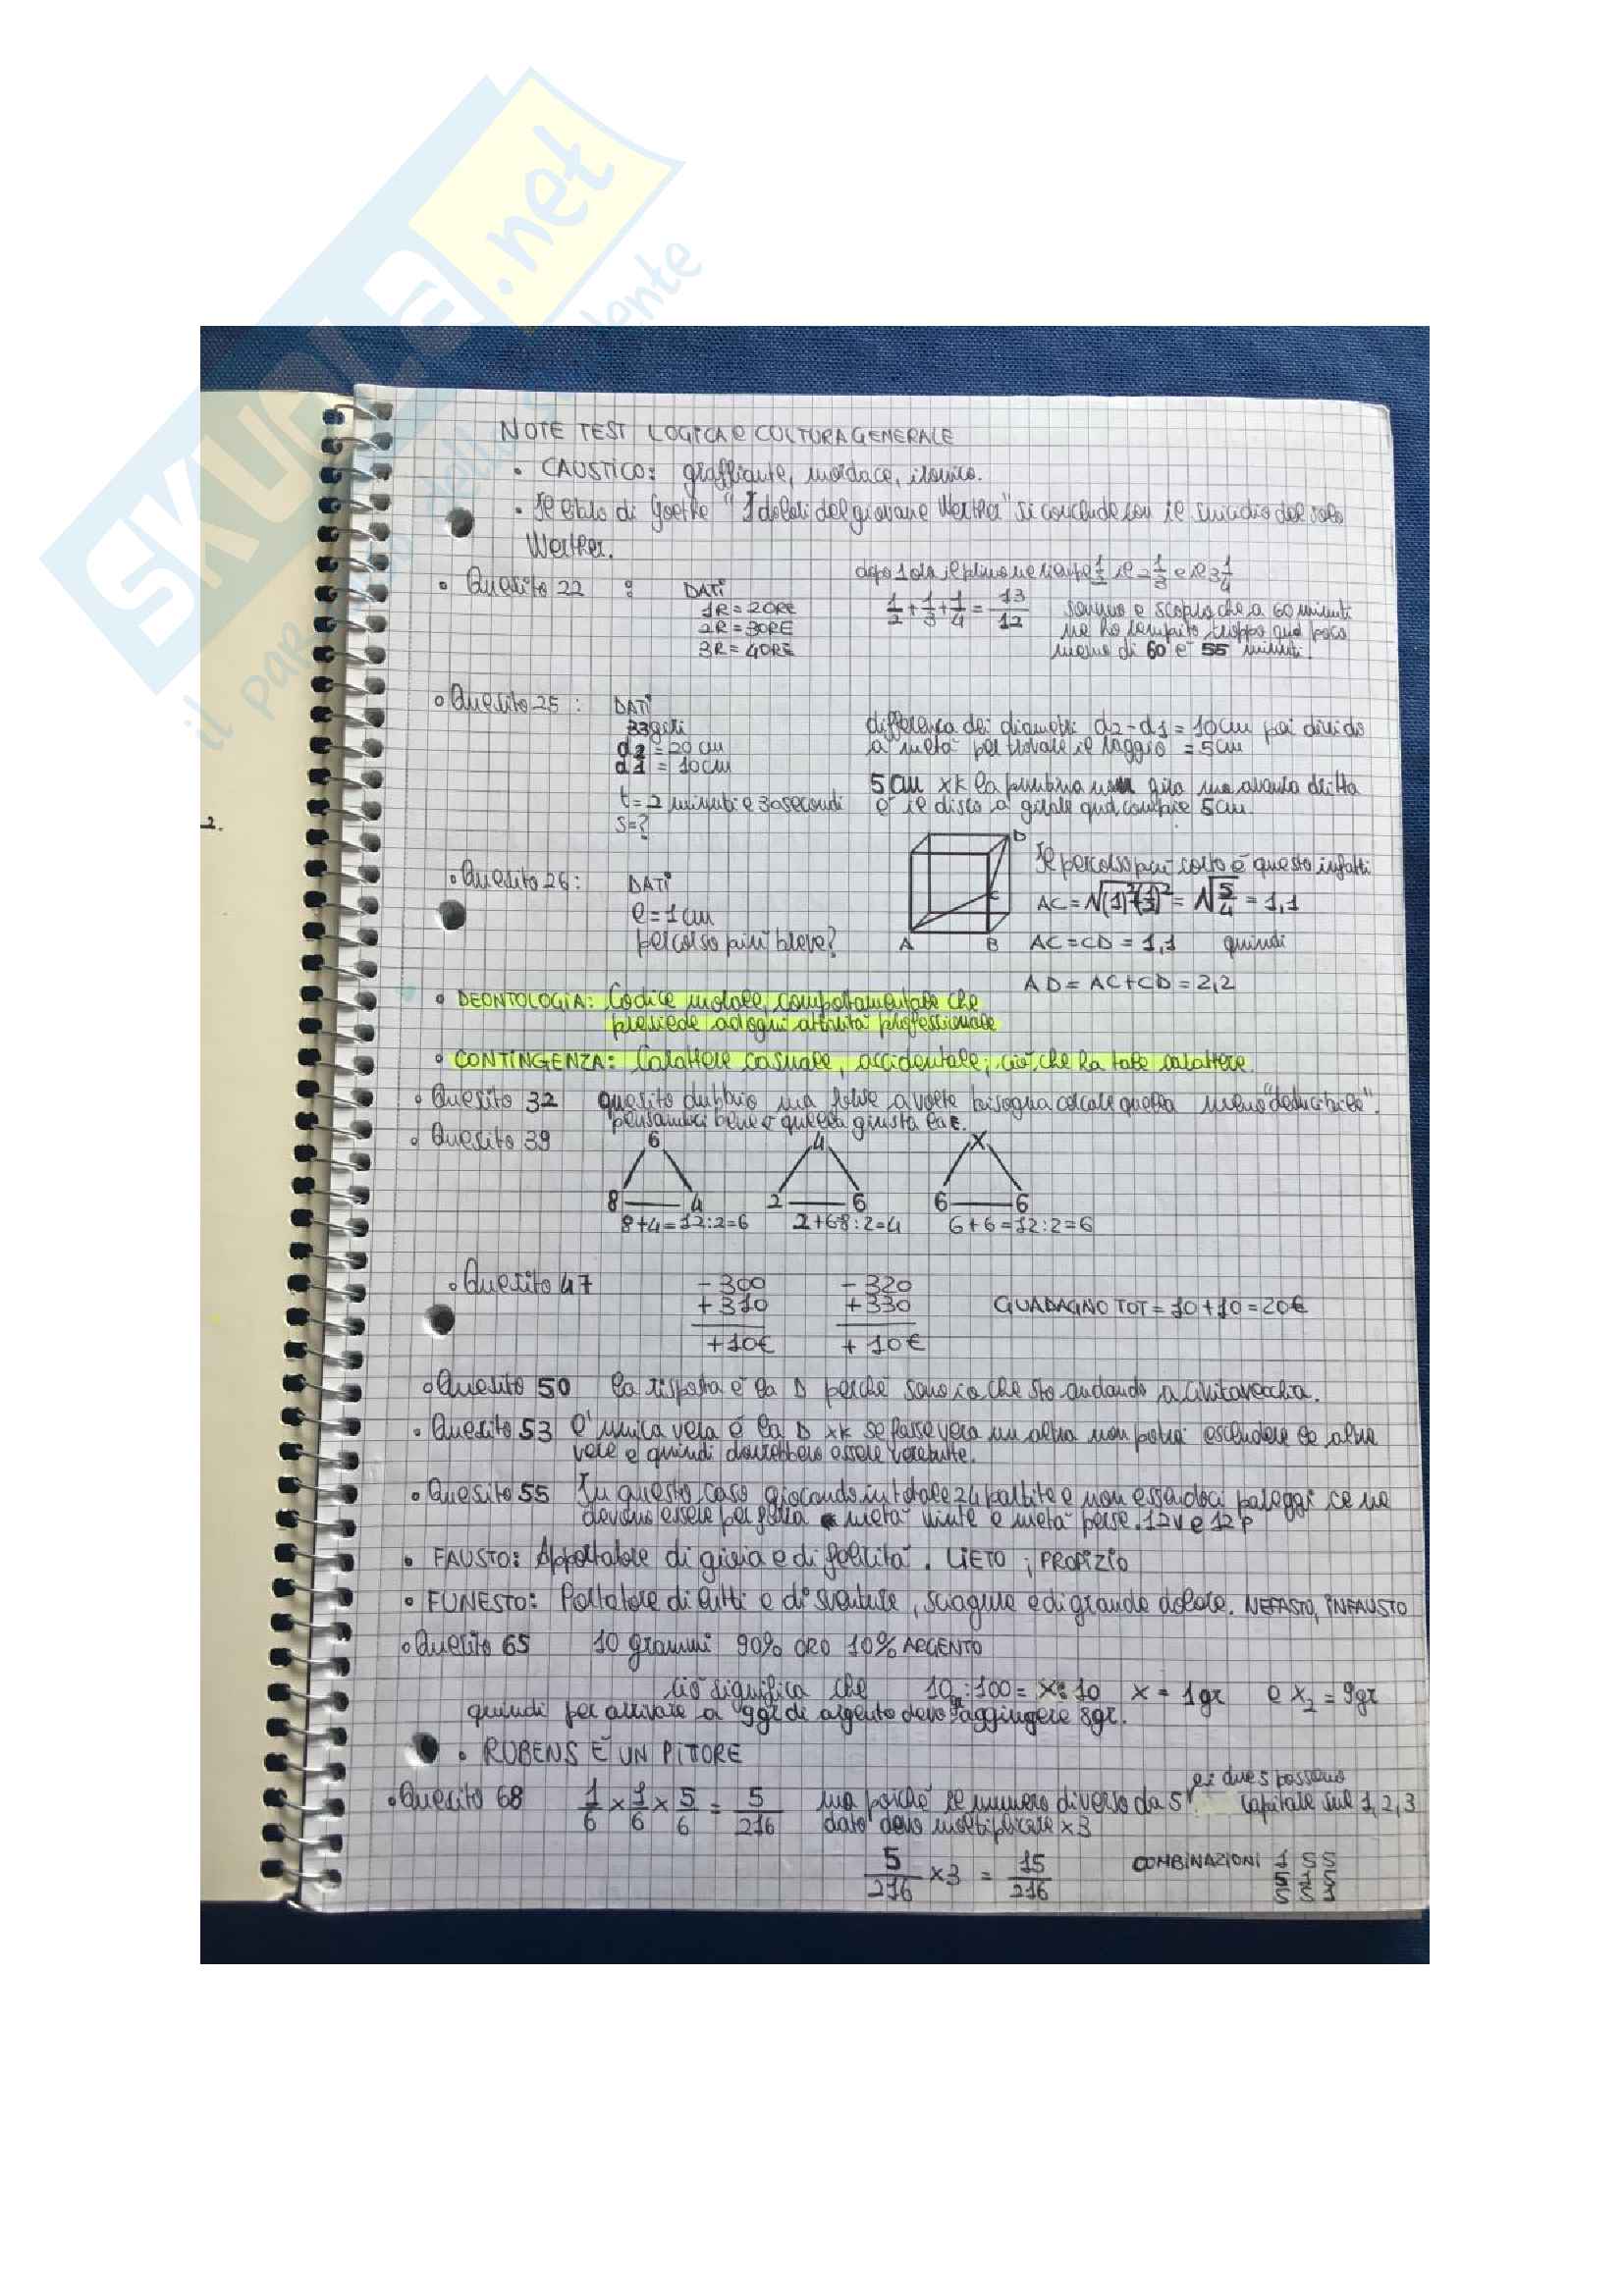 SKUOLA.net
il paradiso dello studente
NOTE TEST LOGICA e CULTURA GENERALE
• CAUSTICO: graffiante, mordace, ironico.
• Il libro di Goethe "I dolori del giovane Werther" si conclude con il suicidio del solo
Werther.
dopo 1 ora il primo ne riempe 1/2 il 2 1/3 e il 3 1/4
• Quesito 22 : DATI
1R = 2ORE 1/2 + 1/3 + 1/4 = 13/12 sommo e scopro che a 60 minuti
2R = 3ORE ne ho riempito troppo qnd poco
3R = 4ORE meno di 60 è 55 minuti.
• Quesito 25 : DATI
33giri differenza dei diametri d2-d1 = 10cm poi divido
d2 = 20 cm a metà per trovare il raggio = 5cm
d1 = 10cm
5cm xk la puntina non gira ma avanza dritta
t = 2 minuti e 30secondi è il disco a girare qnd compie 5cm.
s=?
2.
D
• Quesito 26 : DATI Il percorso più corto è questo infatti
l = 1cm C AC = √(1)²+(1/2)² = √5/4 = 1,1
percorso più breve? A B AC = CD = 1,1 quindi
AD = AC+CD = 2,2
• DEONTOLOGIA: Codice morale, comportamentale che
presiede ad ogni attività professionale
• CONTINGENZA: Carattere casuale, accidentale; ciò che ha tale carattere.
• Quesito 32 quesito dubbio ma forse a volte bisogna cercare quella meno "deducibile".
pensandoci bene è quella giusta la E.
• Quesito 39 6 4 X
8 4 2 6 6 6
8+4=12:2=6 2+6 8:2=4 6+6=12:2=6
• Quesito 47 - 300 - 320
+ 310 + 330 GUADAGNO TOT = 10+10=20€
+10€ + 10€
• Quesito 50 la risposta è la D perché sono io che sto andando a Civitavecchia.
• Quesito 53 l'unica vera è la D xk se fosse vera un altra non potrei escludere le altre
vere e quindi dovrebbero essere vere tutte.
• Quesito 55 In questo caso giocando in totale 24 partite e non essendoci pareggi ce ne
devono essere per forza metà vinte e metà perse. 12v e 12p
• FAUSTO: Apportatore di gioia e di felicità. LIETO, PROPIZIO
• FUNESTO: Portatore di lutti e di sventure, sciagure e di grande dolore. NEFASTO, INFAUSTO
• Quesito 65 10 grammi 90% ORO 10% ARGENTO
ciò significa che 10 :100 = x : 10 x = 1gr e x2 = 9gr
quindi per arrivare a 9gr di argento devo aggingere 8gr.
• RUBENS È UN PITORE
• Quesito 68 1/6 × 1/6 × 5/6 = 5/216 ma poiché il numero diverso da 5 e i due 5 possono capitare sul 1, 2, 3
dato devo moltiplicare ×3
5/216 ×3 = 15/216 COMBINAZIONI 1 5 5
5 1 5
5 5 1